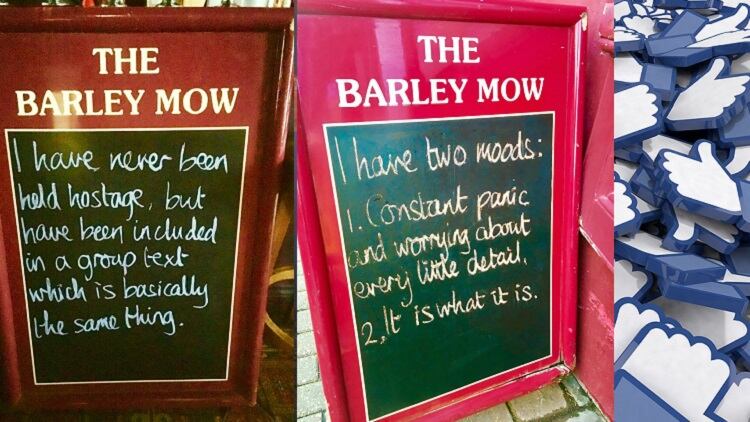 THE
BARLEY MOW
I have never been
held hostage, but
have been included
in a group text
which is basically
the same thing.
THE
BARLEY MOW
I have two moods:
1. Constant panic
and worrying about
every little detail.
2, It is what it is.